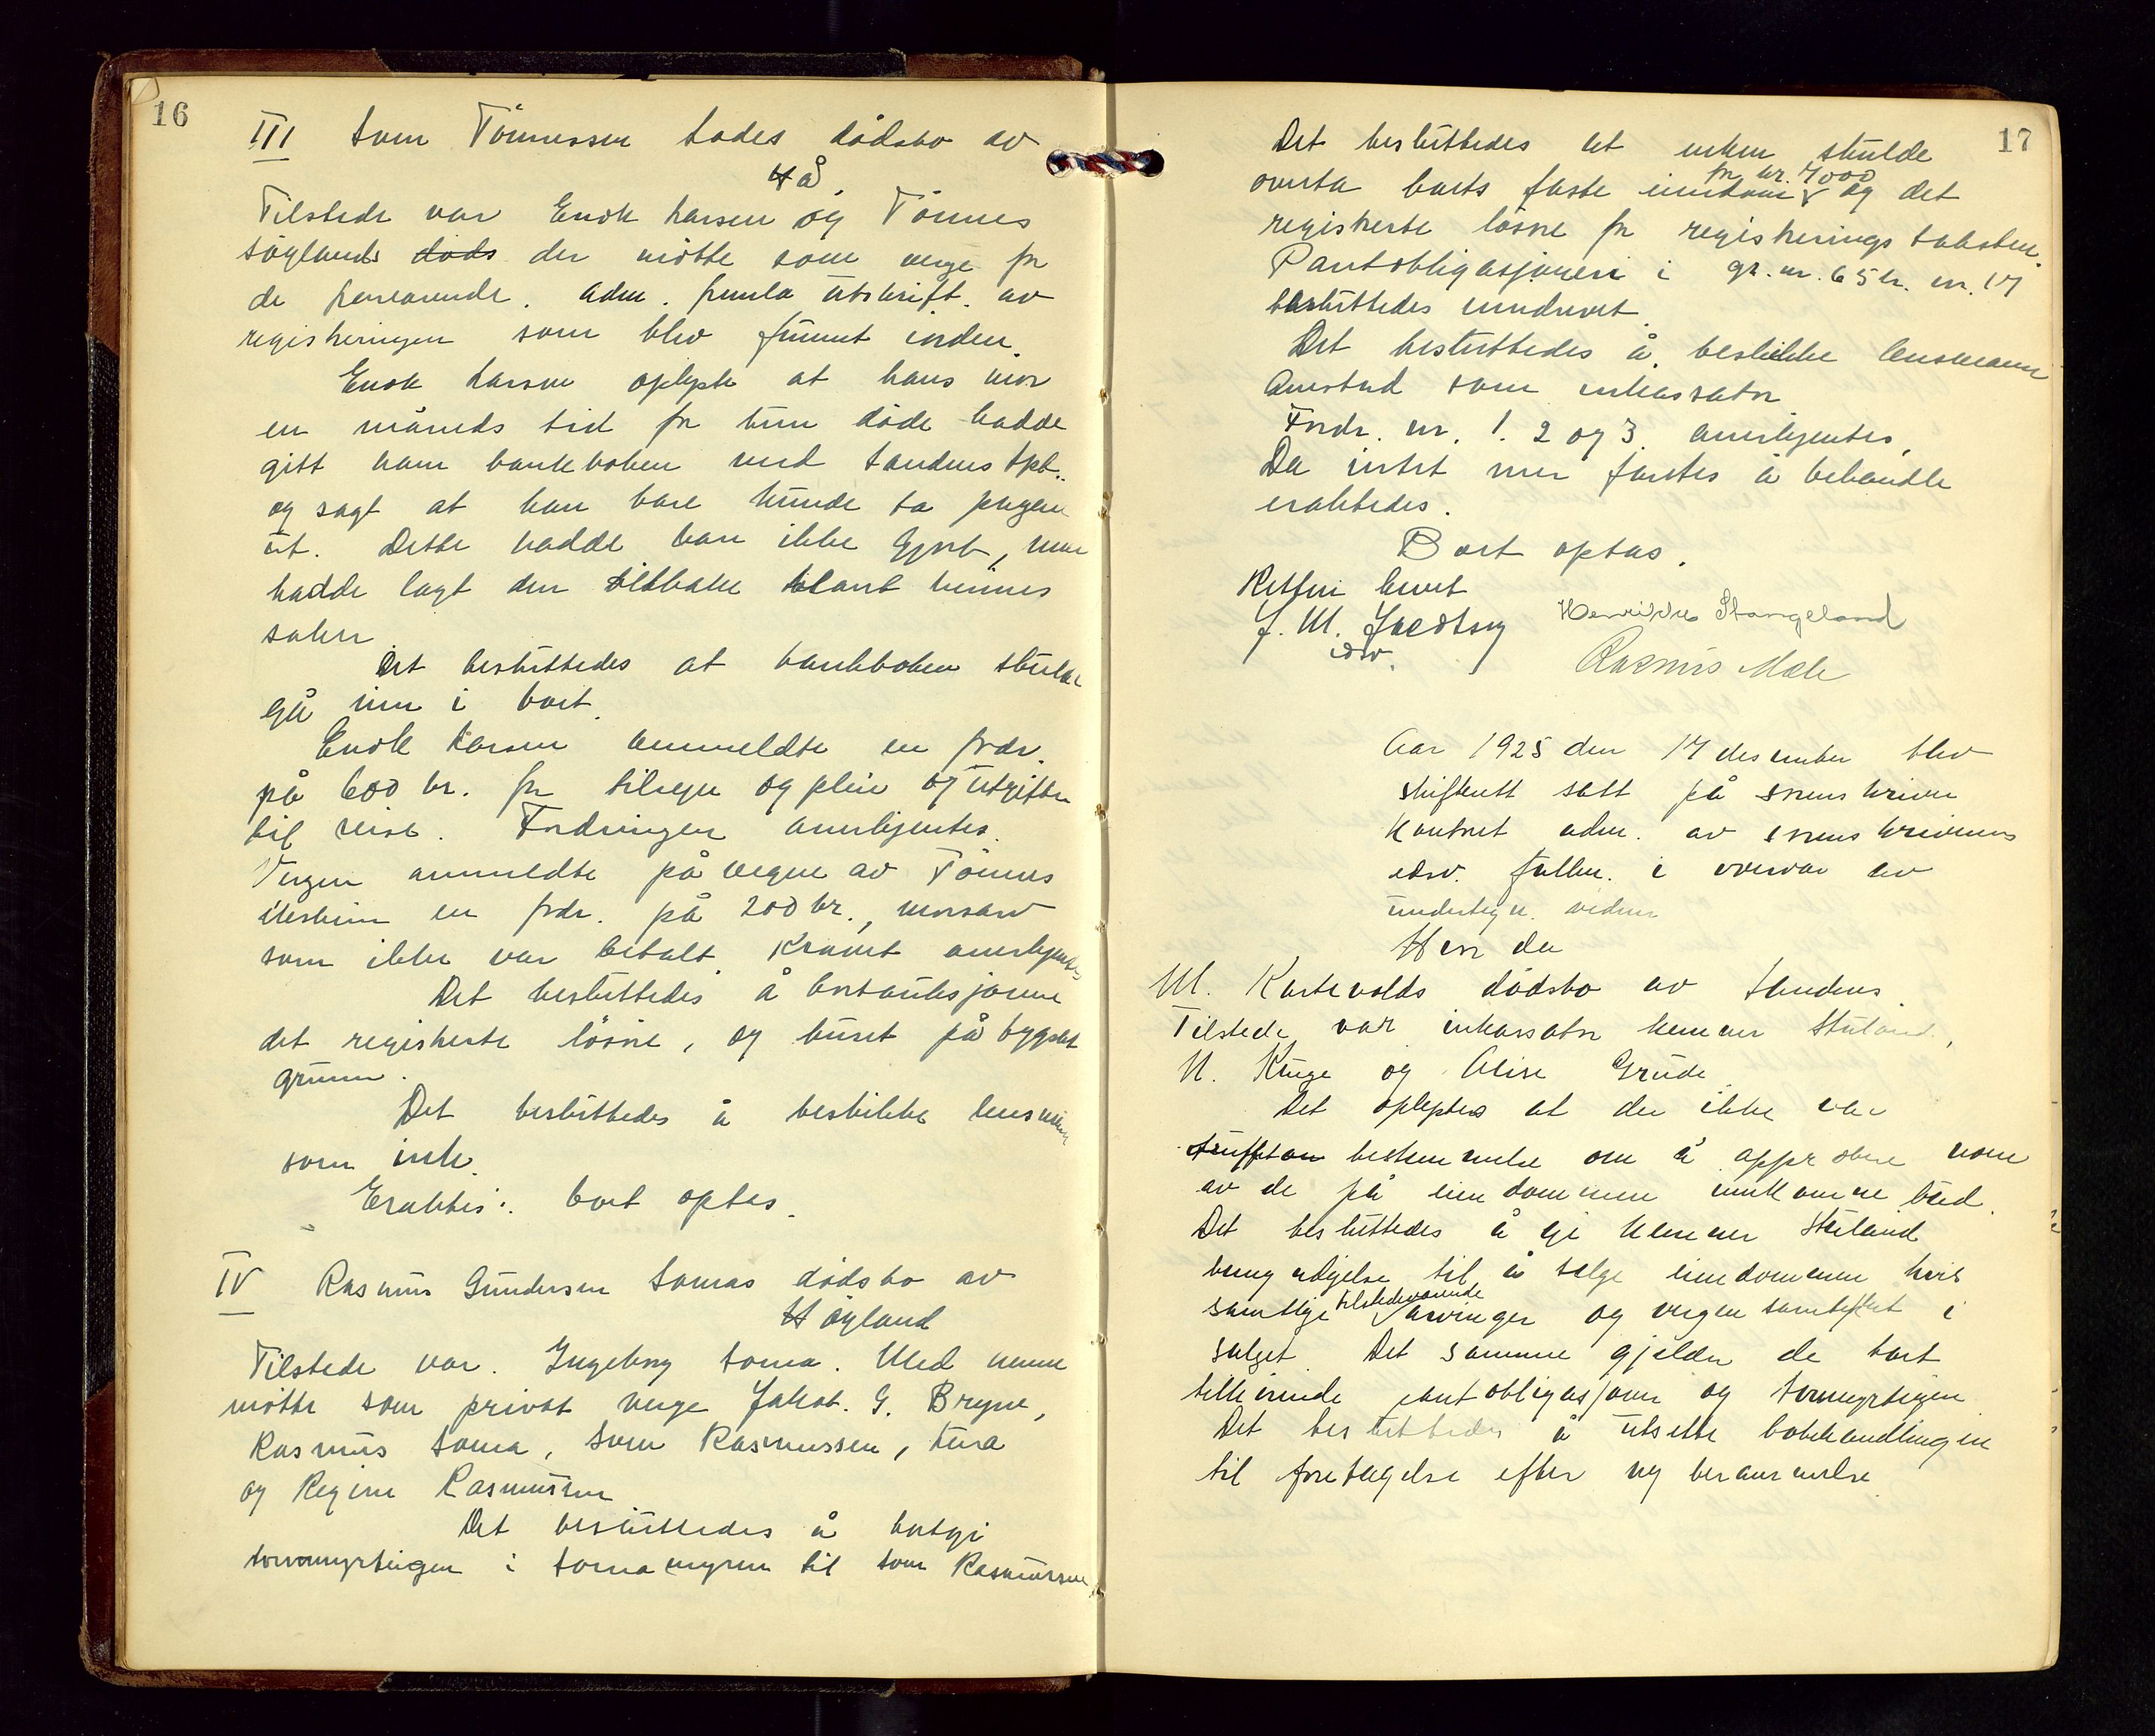 16
III Sven Tönnessen Lodes dödsbo av
Hå.
Tilstede var Enok Larsen og Tönnes
Söyland der mötte som verge for
de fraværende. Adm. fremla utskrift av
registreringen som blev funnet i orden.
Enok Larsen oplyste at hans mor
en måneds tid før hun döde hadde
gitt ham bankboken med Sandnes Spb.
og sagt at han bare kunde ta pengene
ut. Dette hadde han ikke gjort, men
hadde lagt den tilbake blant hennes
saker.
Det besluttedes at bankboken skulde
gå inn i boet.
Enok Larsen anmeldte en fordr.
på 600 kr. for tilsyn og pleie og utgifter
til reise. Fordringen anerkjentes.
Vergen anmeldte på vegne av Tönnes
en fordr. på 200 kr., morsarv
som ikke var betalt. Kravet anerkjentes
Det besluttedes å bortauksjonere
det registrerte lösöre, og huset på bygslet
grunn.
Det besluttedes å beskikke lensmannen
som ink.
Erakties: boet optas.
IV Rasmus Gundersen Somas dödsbo av
Höyland
Tilstede var. Ingeborg Soma. Med henne
mötte som privat verge Jakob. G. Bryne,
Rasmus Soma, Sven Rasmussen, Tura
og Regine Rasmussen
Det besluttedes å bortgi
torvmyrteigen i Somamyren til Sven Rasmussen
17
Det besluttedes at enken skulde
overta boets faste eiendom for kr. 7000 og det
registrerte lösöre for registreringstaksten.
Pantobligasjonen i gr. nr. 65 br. nr. 17
besluttedes inndrevet.
Det besluttedes å beskikke lensmann
Aurstad som inkassator
Fordr. nr. 1. 2 og 3. anerkjentes.
Da intet mer fantes å behandle
eraktedes.
Boet optas.
Retten hevet
J. M. Jacobsen Henrikke Stangeland
edsv. Rasmus Mæle
Aar 1925 den 17 desember blev
skifterett satt på sorenskriver
kontoret adm. av sorenskriverens
edsv. fullm. i overvær av
undertegn. vidner
Hvor da
M. Kartevolds dödsbo av Sandnes.
Tilstede var inkassator kemner Stuland,
N. Kluge og Alise Grude.
Det oplystes at der ikke var
truffet bestemmelse om å approbere noen
av de på eiendommene innkomne bud.
Det besluttedes å gi kemner Stuland
bemyndigelse til å selge eiendommene hvis
samtlige tilstedeværende arvinger og vergen samtykket i
salget. Det samme gjelder de boet
tilhörende pantobligasjoner og torvmyrteigen.
Det besluttedes å utsette bobehandlingen
til foretagelse efter ny berammelse.